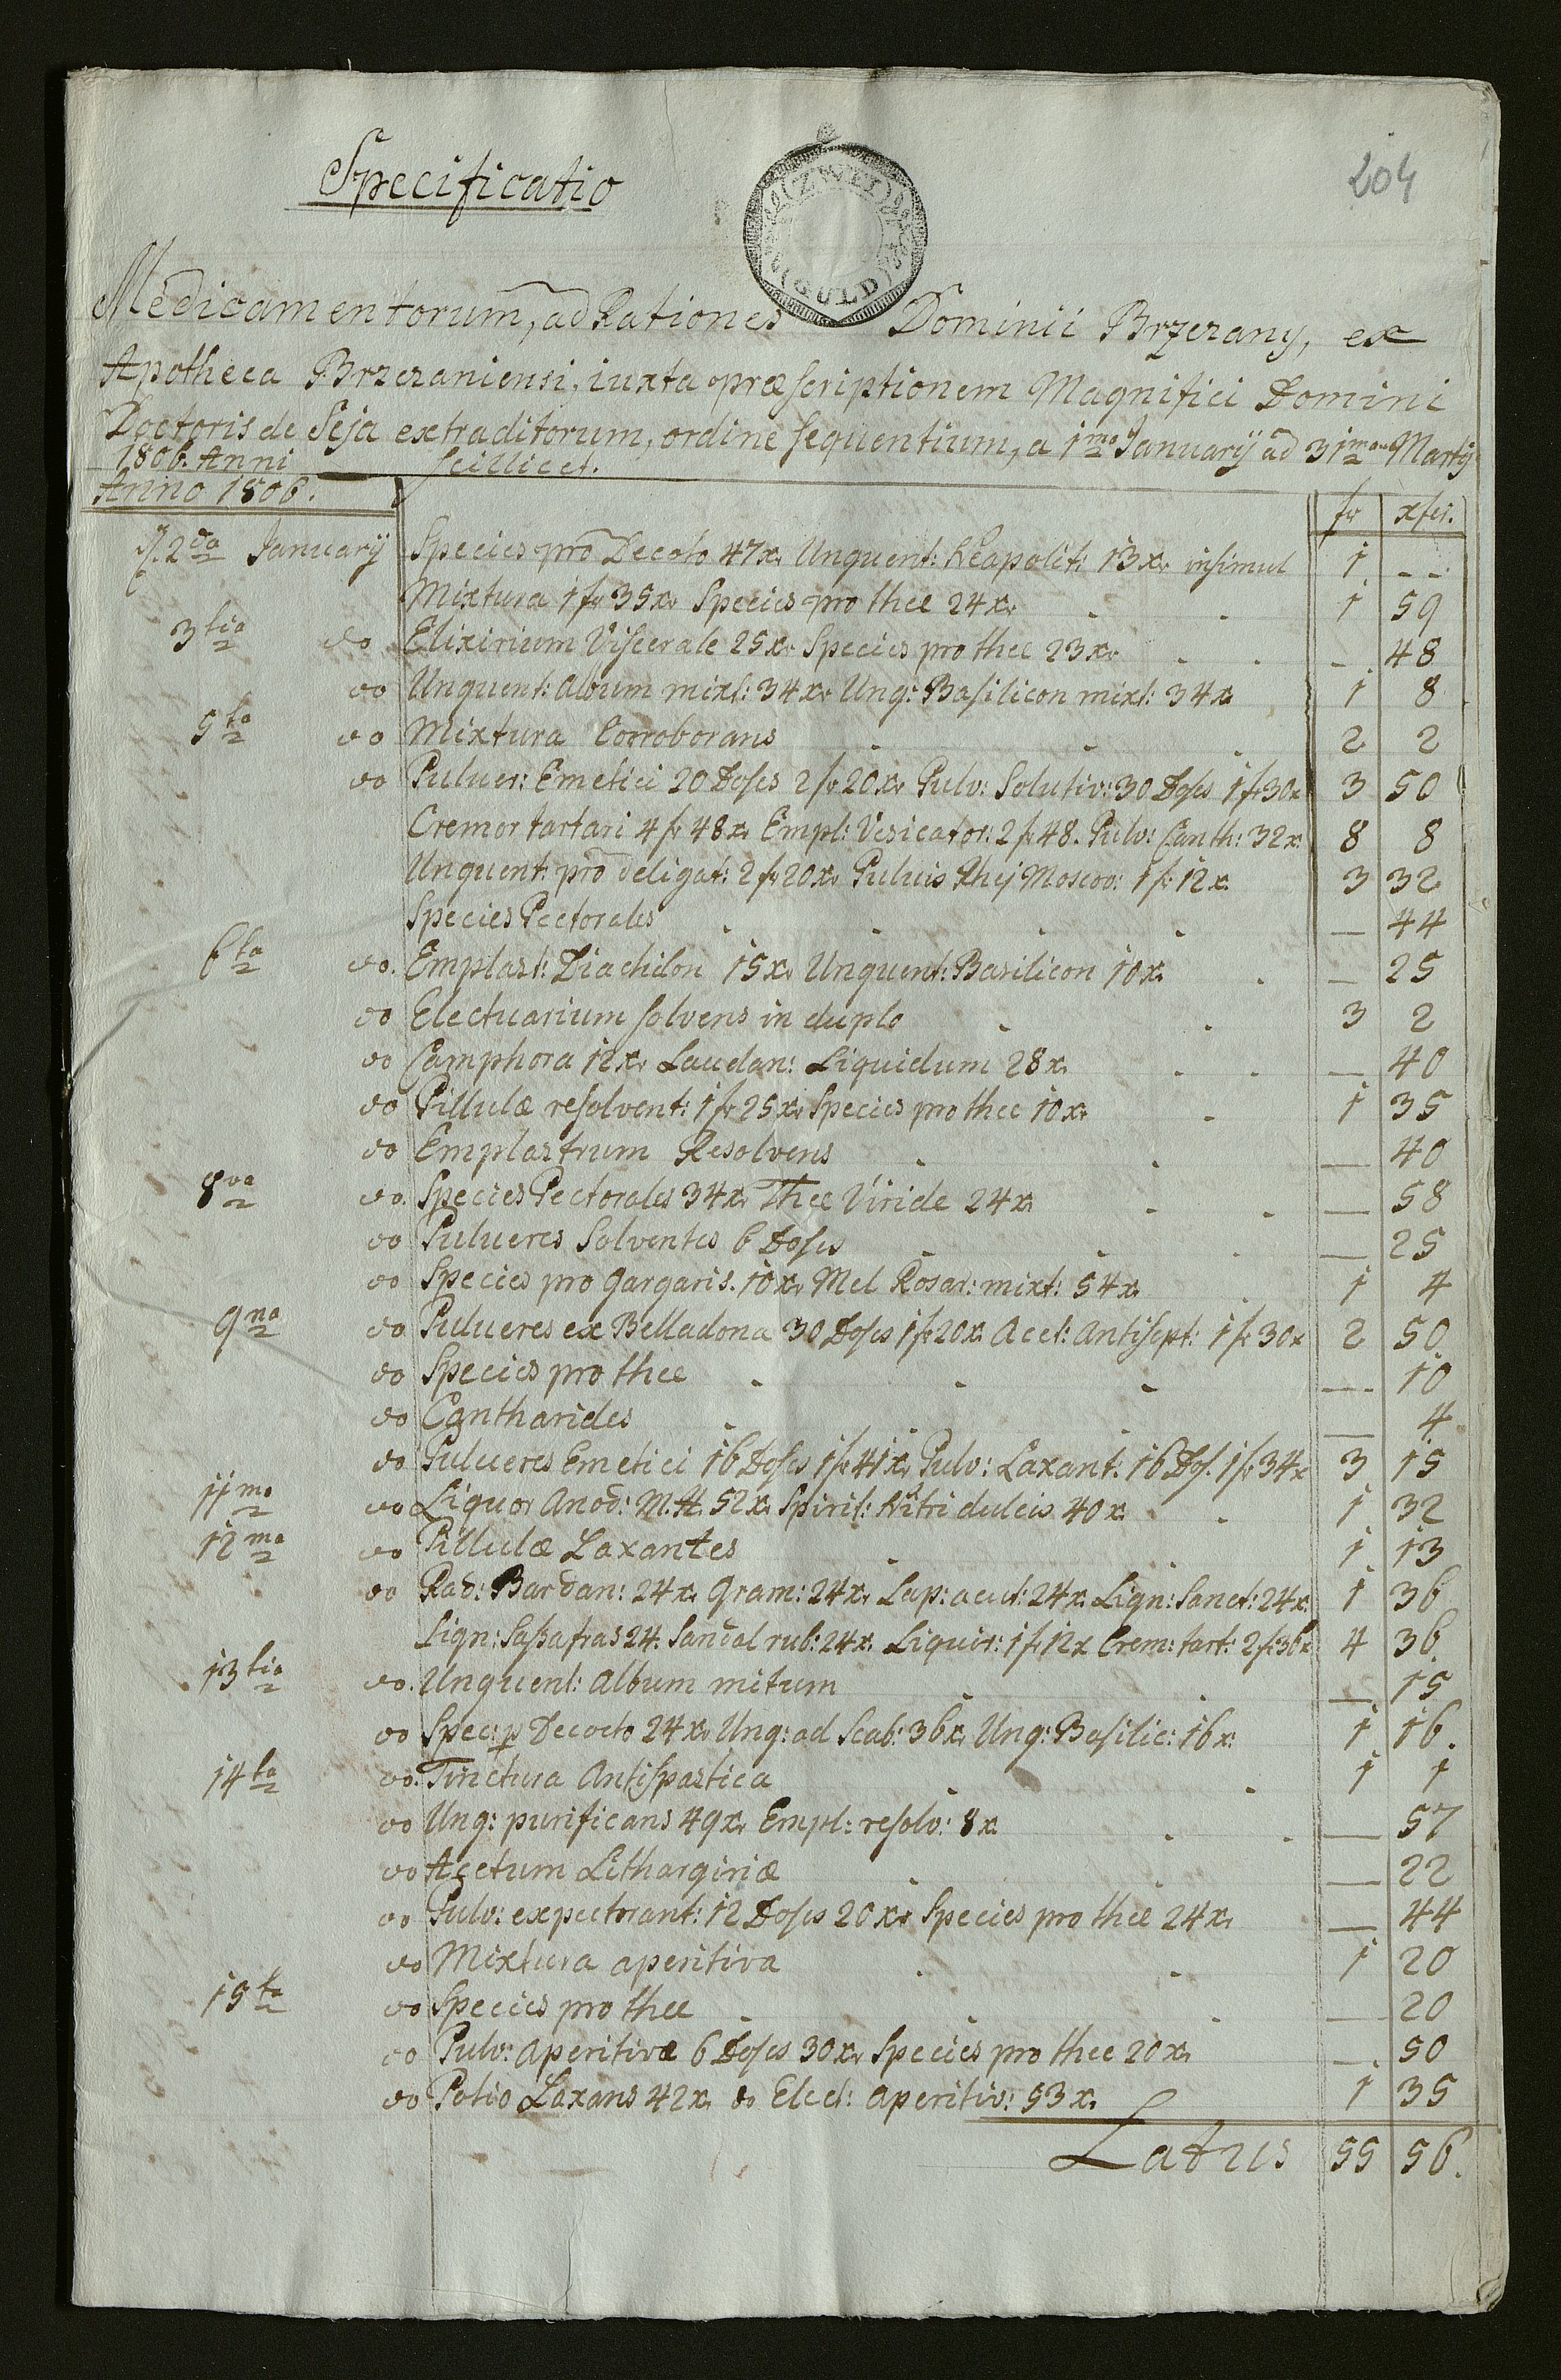 204
Specificatio
ZWEI GULD
Medicamentorum, ad Rationes Dominii Brzezany, ex
Apotheca Brzezaniensi, iuxta præscriptionem Magnifici Domini
Doctoris de Seja extraditorum, ordine sequentium, a 1ma Januarij ad 31mam Martij
1806. Anni scillicet.
Anno 1806. fr xfer.
2da Januarij Species pro Decoto 47xr Unguent: Neapolit: 13xr insimul 1 --
Mixtura 1fr 35xr Species pro thee 24xr 1 59
3tia do Elixirium Viscerale 25xr Species pro thee 23xr — 48
do Unguent: Album mixt: 34xr Ung: Basilicon mixt: 34x 1 8
5ta do Mixtura Corroborans 2 2
do Pulver: Emetici 20 Doses 2fr 20xr Pulv: Solutiv: 30 Doses 1fr 30x 3 50
Cremor tartari 4fr 48x. Empl: Vesicator: 2fr 48. Pulv: Canth: 32x. 8 8
Unguent: pro deligat: 2fr 20xr Pulvis Rhij Moscov: 1fr 12x. 3 32
Species Pectorales — 44
6ta do. Emplast: Diachilon 15xr Unguent: Basilicon 10x. — 25
do Electuarium solvens in duplo 3 2
do Camphora 12xr Laudan: Liquidum 28x. — 40
do Pillulæ resolvent: 1fr 25xr Species pro thee 10xr 1 35
do Emplastrum Resolvens — 40
8va do. Species Pectorales 34xr Thee Viride 24x — 58
do Pulueres Solventes 6 Doses — 25
do Species pro gargaris. 10xr Mel Rosar: mixt: 54x. 1 4
9na do Pulueres ex Belladona 30 Doses 1fr 20x. Acet: Antisept: 1fr 30x 2 50
do Species pro thee — 10
do Cantharides — 4
do Pulueres Emetici 16 Doses 1fr 41xr Pulv: Laxant: 16 Dos. 1fr 34x 3 15
11ma do Liquor Anod: M.H. 52x. Spirit: Nitri dulcis 40x. 1 32
12ma do Pillulæ Laxantes 1 13
do Rad: Bardan: 24x. gram: 24xr Lap: acut: 24x. Lign: Sanct: 24x. 1 36
Lign: Saßafras 24. Sandal rub: 24x. Liquir: 1fr 12x Crem: tart: 2fr 36x 4 36
13tia do. Unguent: Album mitum — 15
do Spec: p Decocto 24xr Ung: ad Scab: 36xr Ung: Basilic: 16x. 1 16.
14ta do. Tinctura Antispastica 1 1
do Ung: purificans 49xr Empl: resolv: 8x. — 57
do Acetum Lithargiriæ — 22
do Pulv: expectorant: 12 Doses 20xr Species pro thee 24xr — 44
do Mixtura aperitiva 1 20
15ta do Species pro thee — 20
do Pulv: Aperitivæ 6 Doses 30xr Species pro thee 20xr — 50
do Potio Laxans 42x. do Elect: Aperitiv: 53x. 1 35
Latus 55 56.